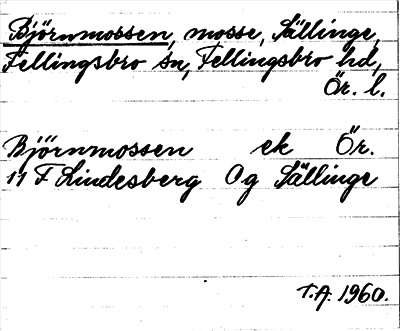 Björnmossen, mosse, Sällinge,
Fellingsbro sn, Fellingsbro hd,
Ör. l.
Björnmossen ek Ör.
11 F Lindesberg Og Sällinge
T.A. 1960.